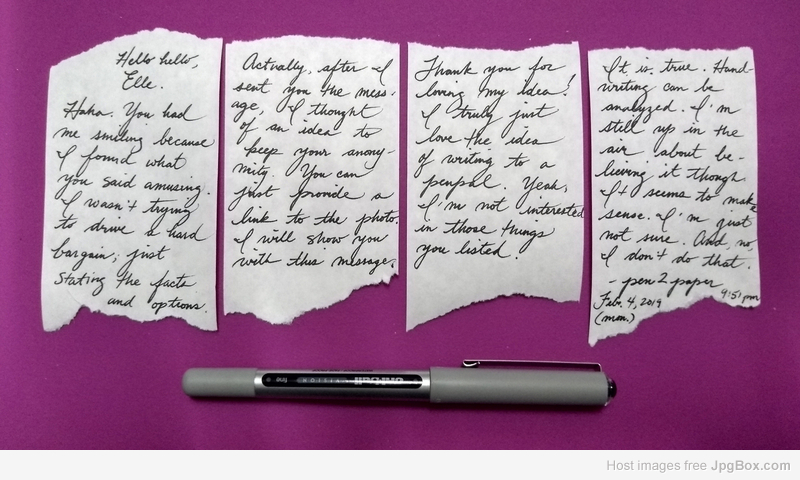 Hello hello,
Elle.
Haha. You had
me smiling because
I found what
you said amusing.
I wasn't trying
to drive a hard
bargain; just
stating the facts
and options.
Actually, after I
sent you the mess-
age, I thought
of an idea to
keep your anony-
mity. You can
just provide a
link to the photo.
I will show you
with this message.
Thank you for
loving my idea!
I truly just
love the idea
of writing to a
penpal. Yeah,
I'm not interested
in those things
you listed.
It is true. Hand-
writing can be
analyzed. I'm
still up in the
air about be-
lieving it though.
It seems to make
sense. I'm just
not sure. And, no,
I don't do that.
- pen2paper
Feb. 4, 2019 9:51pm
(mon.)
uni-ball
VISION
fine
Host images free JpgBox.com